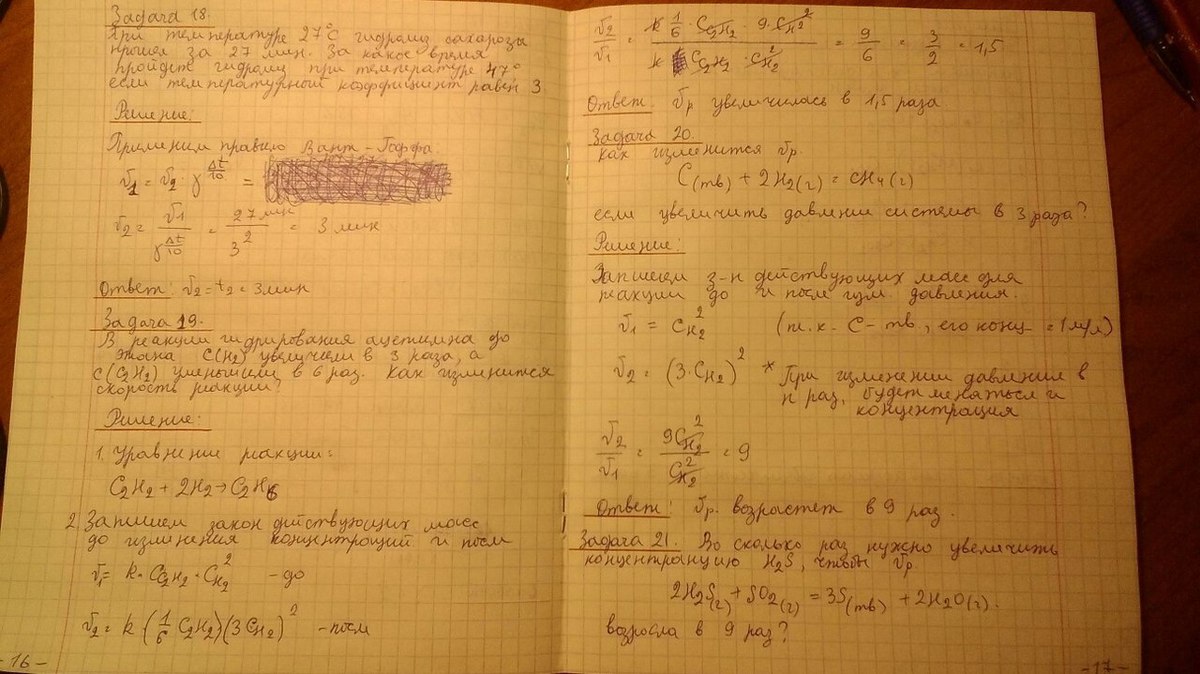 Задача 18.
При температуре 27°C гидролиз сахарозы
прошел за 27 мин. За какое время
пройдет гидролиз при температуре 47°
если температурный коэффициент равен 3.
Решение:
Применим правило Вант-Гоффа.
v1 = v2 · γ^(Δt/10) =
v2 = v1 / γ^(Δt/10) = 27 мин / 3^2 = 3 мин
Ответ: v2 = t2 = 3 мин
Задача 19.
В реакции гидрирования ацетилена до
этана C(H2) увеличили в 3 раза, а
C(C2H2) уменьшили в 6 раз. Как изменится
скорость реакции?
Решение:
1. Уравнение реакции:
C2H2 + 2H2 → C2H6
2. Запишем закон действующих масс
до изменения концентраций и после
v1 = k · CC2H2 · CH2^2 - до
v2 = k · (1/6 C2H2)(3CH2)^2 - после
-16-
v2/v1 = k 1/6 · CC2H2 · 9 · CH2^2 / k CC2H2 · CH2^2 = 9/6 = 3/2 = 1,5
Ответ. vр увеличилась в 1,5 раза
Задача 20.
как изменится vр.
C(тв) + 2H2(г) = CH4(г)
если увеличить давление системы в 3 раза?
Решение:
Запишем з-н действующих масс для
реакции до и после изм. давления.
v1 = CH2^2 (т.к. C - тв, его конц = 1 м/л)
v2 = (3·CH2)^2 * При изменении давление в
n раз, будет меняться и
концентрация
v2/v1 = 9CH2^2 / CH2^2 = 9
Ответ: vр. возрастет в 9 раз.
Задача 21. Во сколько раз нужно увеличить
концентранцию H2S, чтобы vр
2H2S(г) + SO2(г) = 3S(тв) + 2H2O(г).
возросла в 9 раз?
-17-